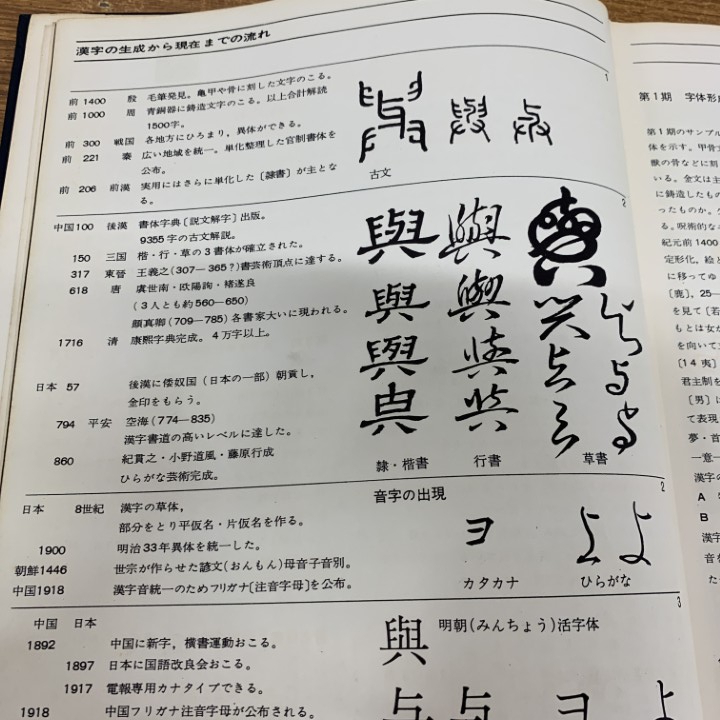 漢字の生成から現在までの流れ
1
前 1400 殷 毛筆発見。亀甲や骨に刻した文字のこる。
前 1000 周 青銅器に鋳造文字のこる。以上合計解読
1500字。
前 300 戦国 各地方にひろまり，異体ができる。
前 221 秦 広い地域を統一。単化整理した官制書体を
公布。
前 206 前漢 実用にはさらに単化した〔隷書〕が主とな
る。
古文
2
中国100 後漢 書体字典〔説文解字〕出版。
9355字の古文解説。
150 三国 楷・行・草の3書体が確立された。
317 東晉 王義之(307—365?)書芸術頂点に達する。
618 唐 虞世南・欧陽詢・褚遂良
(3人とも約560—650)
顔真卿(709—785)各書家大いに現われる。
1716 清 康熙字典完成。4万字以上。
日本 57 後漢に倭奴国(日本の一部)朝貢し，
金印をもらう。
794 平安 空海(774—835)
漢字書道の高いレベルに達した。
860 紀貫之・小野道風・藤原行成
ひらがな芸術完成。
與 與
與 與
與 與
與
隷・楷書 行書 草書
2
日本 8世紀 漢字の草体，
部分をとり平仮名・片仮名を作る。
1900 明治33年異体を統一した。
朝鮮1446 世宗が作らせた諺文(おんもん)母音子音別。
中国1918 漢字音統一のためフリガナ〔注音字母〕を公布。
音字の出現
ヨ よ よ
カタカナ ひらがな
3
中国 日本
1892 中国に新字，横書運動おこる。
1897 日本に国語改良会おこる。
1917 電報専用カナタイプできる。
1918 中国フリガナ注音字母が公布される。
與 明朝(みんちょう)活字体
与 与 ヨ よ
第1期 字体形成
第1期のサンプル
体を示す。甲骨文
獣の骨などに刻
いる。金文は主
に鋳造したもの
ったものか。
る。呪術的な
紀元前1400
定形化。絵と
に移ってゆ
〔鹿〕，25—
を見て〔若
もとは女か
を向いて
〔14 夷〕
君主制を
〔男〕に
て表現
夢・首
一意一
漢字の
A
B
漢字
た